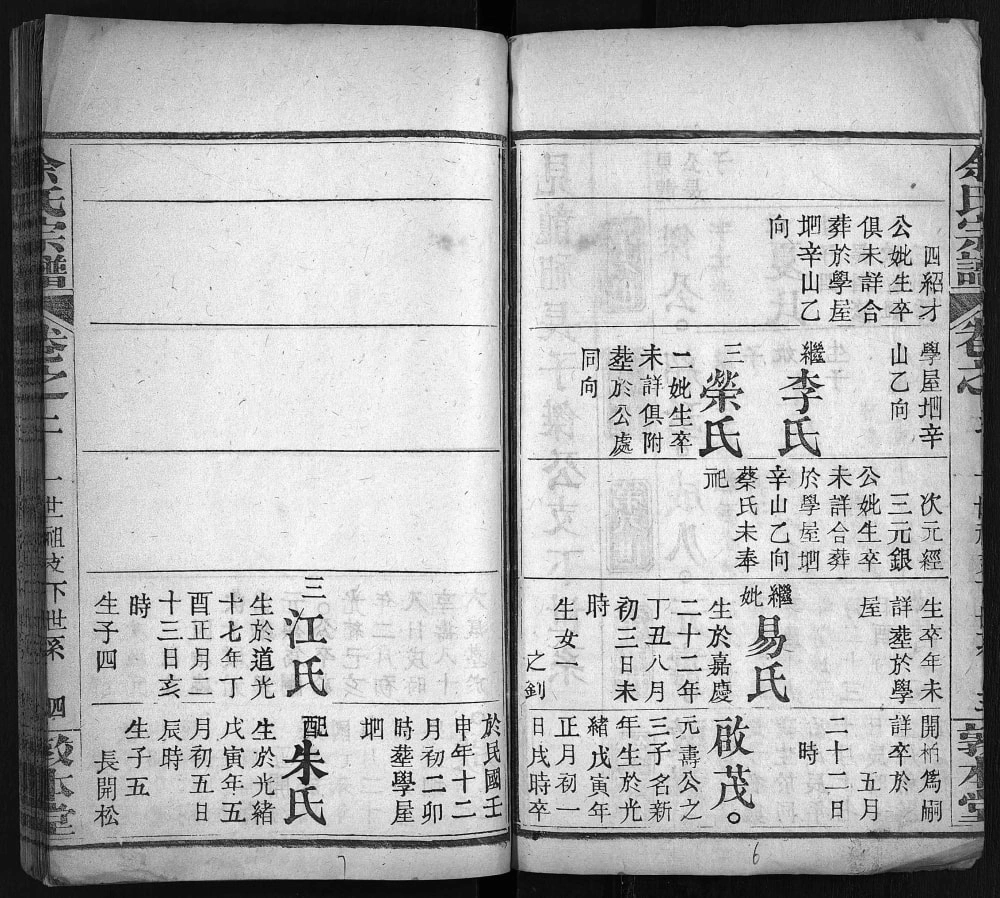 余氏宗譜
卷之
敦本堂
四紹才
公妣生卒
俱未詳合
葬於學屋
垇辛山乙
向
學屋垇辛
山乙向
繼李氏
三榮氏
二妣生卒
未詳俱附
塟於公處
同向
次元經
三元銀
公妣生卒
未詳合葬
於學屋垇
辛山乙向
蔡氏未奉
祀
生卒年未
詳塟於學
屋
繼妣易氏
生於嘉慶
二十二年
丁丑八月
初三日未
時
生女一
之釗
開柏爲嗣
詳卒於
五月
二十二日
時
啟茂。
元壽公之
三子名新
年生於光
緒戊寅年
正月初一
日戌時卒
6
三江氏
生於道光
十七年丁
酉正月二
十三日亥
時
生子四
於民國壬
申年十二
月初二卯
時塟學屋
垇
配朱氏
生於光緒
戊寅年五
月初五日
辰時
生子五
長開松
余氏宗譜
卷之二
一世祖支下世系
四
敦本堂
7